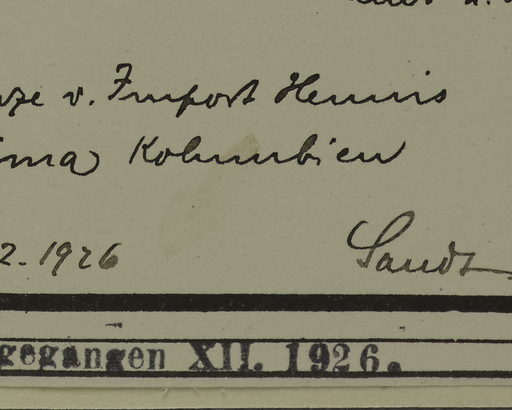 v. Import Hennis
Kolumbien
2.1926
Sandt
gegangen XII. 1926.